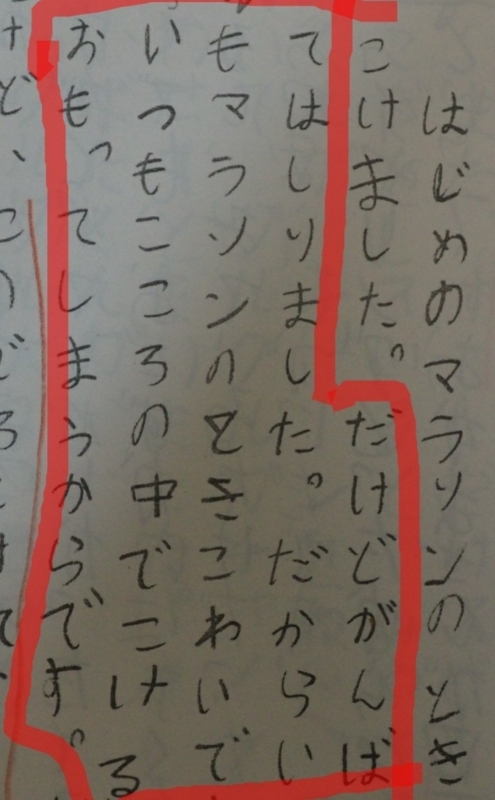 はじめのマラソンのとき
こけました。だけどがんば
てはしりました。だからい
もマラソンのときこわいで
。いつもこころの中でこける
おもってしまうからです。
けど、